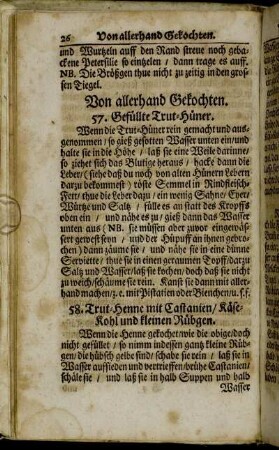 26 Von allerhand Gekochten.
und Wurtzeln auff den Rand streue noch geba-
ckene Petersilie so eintzeln / dann trage es auff.
NB. Die Brößgen thue nicht zu zeitig in den gros-
sen Tiegel.
Von allerhand Gekochten.
57. Gefüllte Trut-Hüner.
Wenn die Trut-Hüner rein gemacht und aus-
genommen / so gieß gesotten Wasser unten ein / und
halte sie in die Höhe / laß sie eine Weile darinne /
so ziehet sich das Blutige heraus / hacke dann die
Leber / (siehe daß du noch von alten Hünern Lebern
darzu bekommest) röste Semmel in Rindfleisch-
Fett / thue die Leber dazu / ein wenig Sahne / Eyer /
Würtze und Saltz / fülle es an statt des Kropffs
oben ein / und nähe es zu / gieß dann das Wasser
unten aus (NB. sie müssen aber zuvor eingewäs-
sert gewest seyn / und der Hüpuff an ihnen gebro-
chen) dann zäume sie / und nähe sie in eine dünne
Serviette / thue sie in einen geraumen Topff / darzu
Saltz und Wasser / laß sie kochen / doch daß sie nicht
zu weich / schäume sie rein. Kanst sie dann mit aller-
hand machen / z. e. mit Pistatien oder Bienchen / u. s. f.
58. Trut-Henne mit Castanien / Käse-
Kohl und kleinen Rübgen.
Wenn die Henne gekochet / wie die obige / doch
nicht gefüllet / so nimm indessen gantz kleine Rüb-
gen / die hübsch gelbe sind / schabe sie rein / laß sie in
Wasser aufsieden und vertrieffen / brühe Castanien /
schäle sie / und laß sie in halb Suppen und halb
Wasser